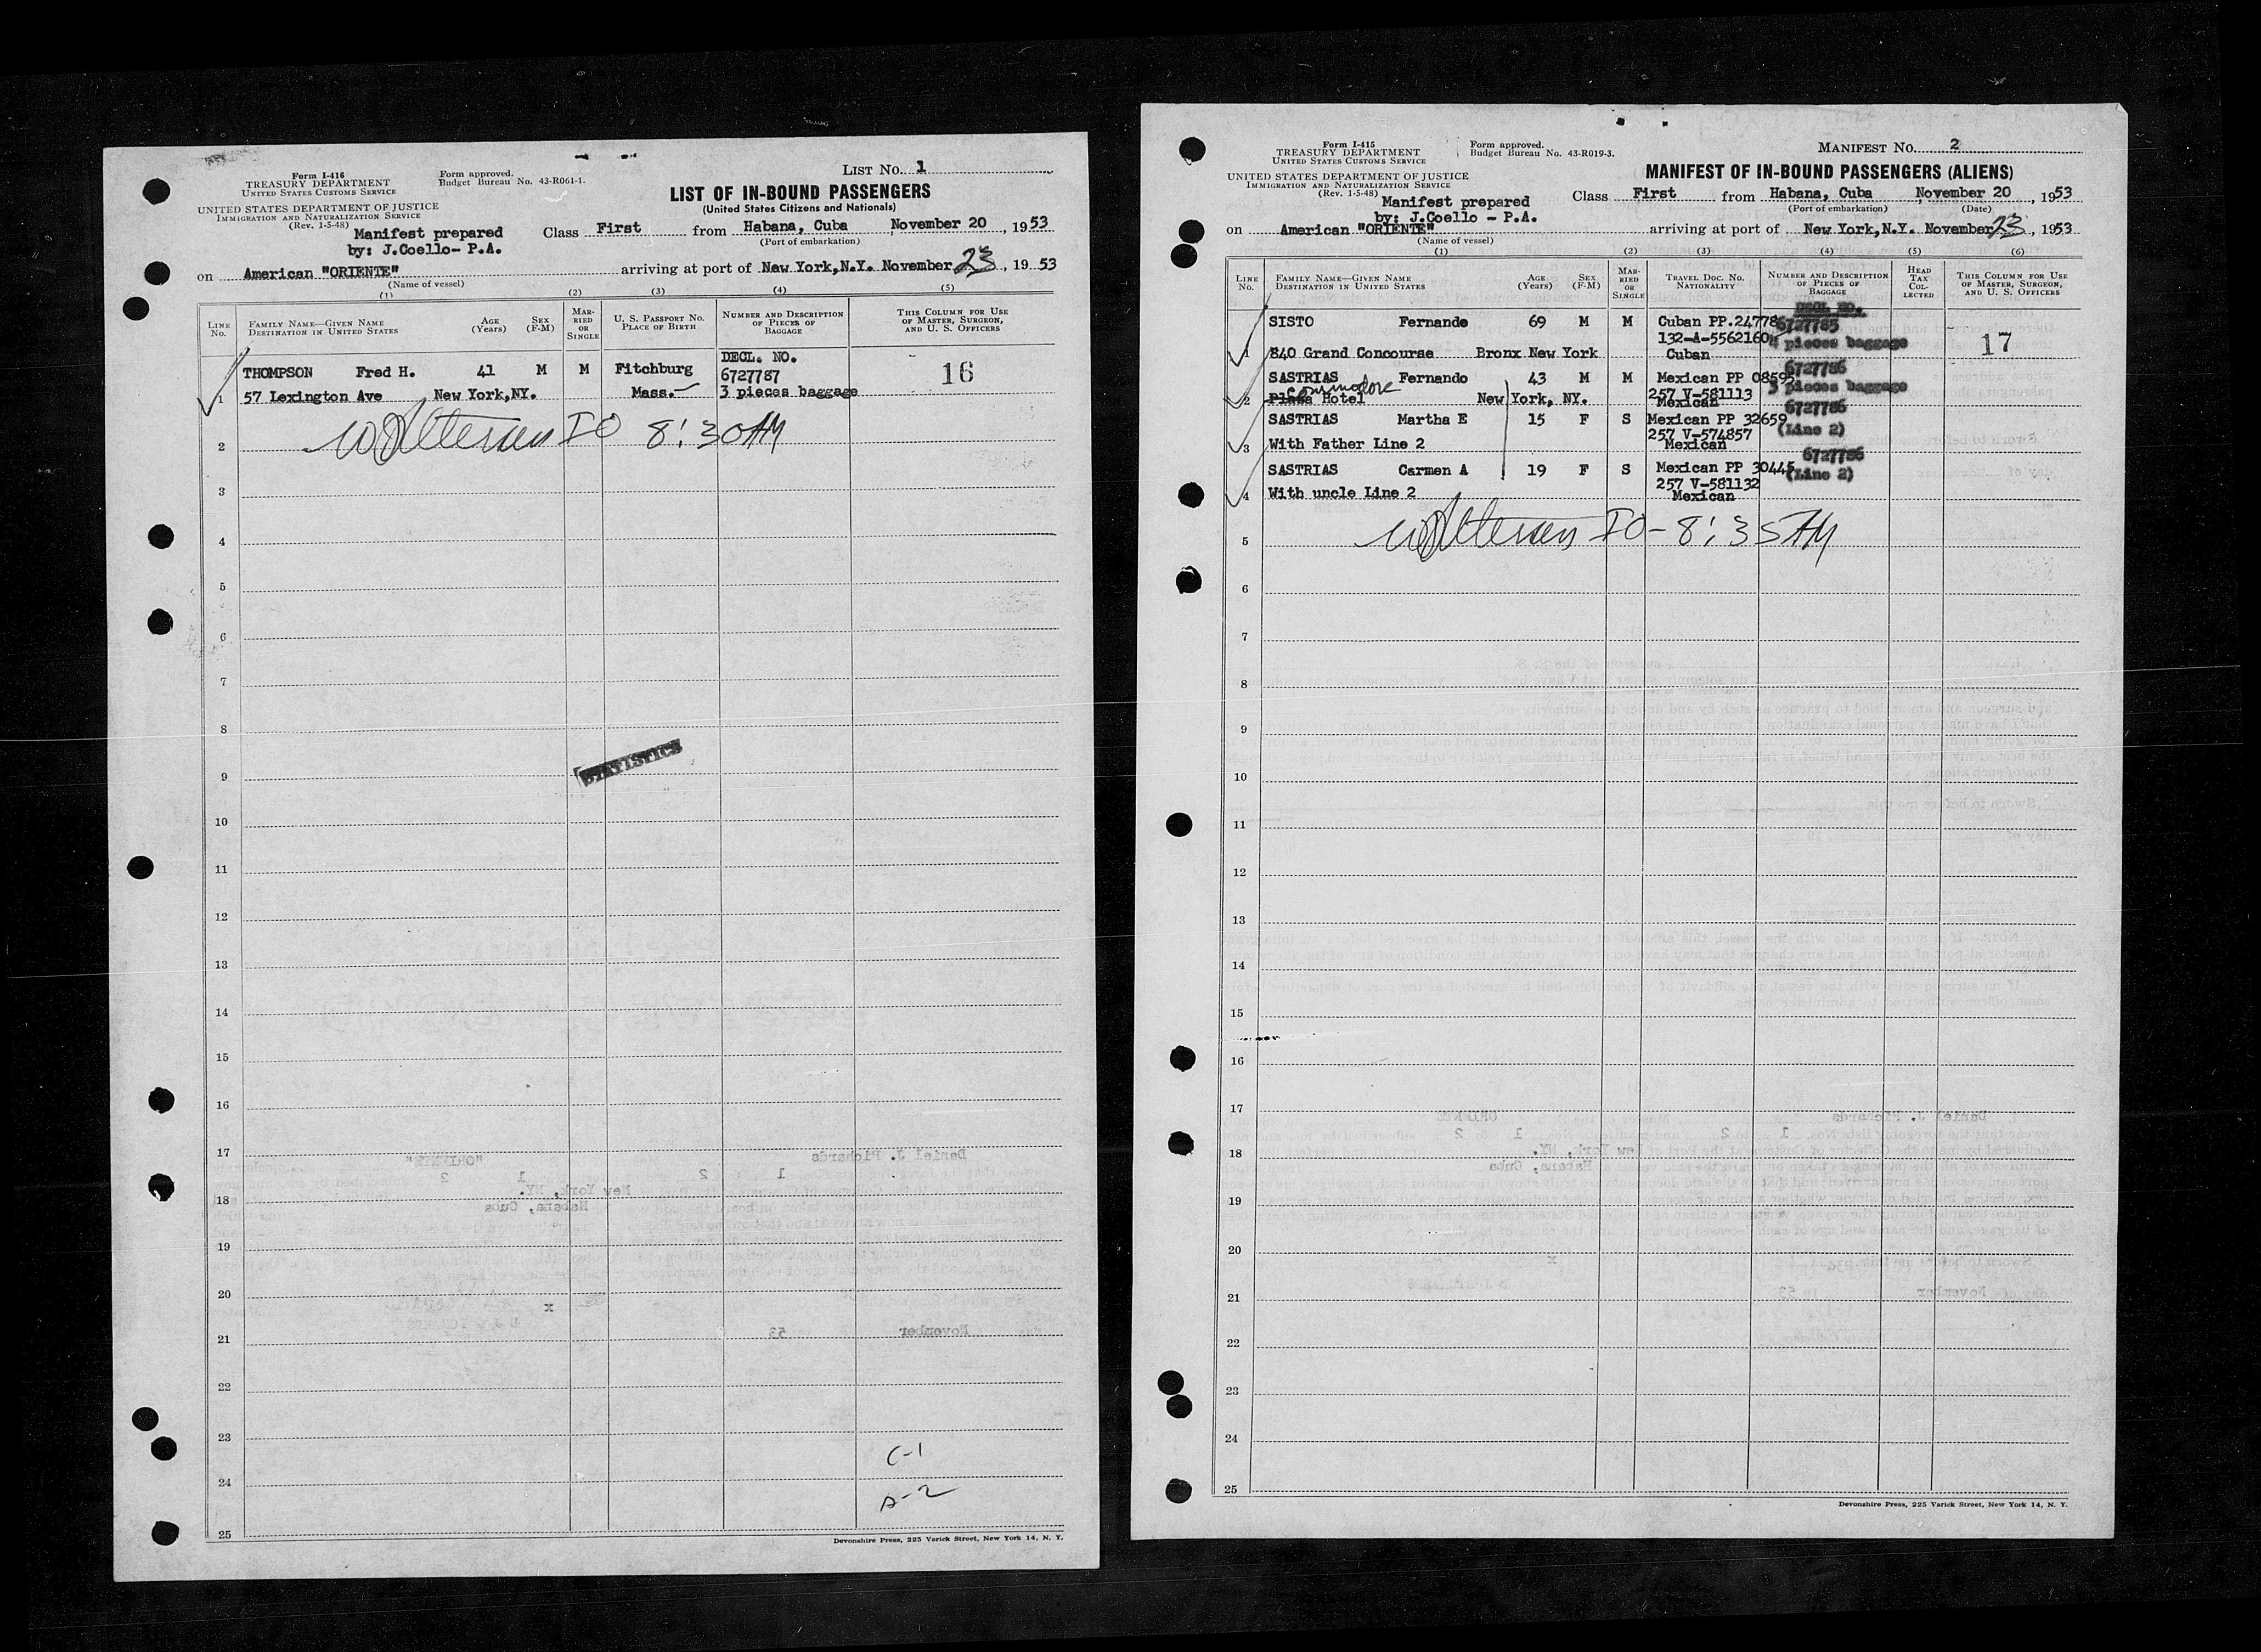 Form I-416
TREASURY DEPARTMENT
UNITED STATES CUSTOMS SERVICE
Form approved.
Budget Bureau No. 43-R061-1.
LIST NO. 1
UNITED STATES DEPARTMENT OF JUSTICE
IMMIGRATION AND NATURALIZATION SERVICE
(Rev. 1-5-48)
LIST OF IN-BOUND PASSENGERS
(United States Citizens and Nationals)
Manifest prepared
by: J.Coello- P.A.
Class First from Habana, Cuba , November 20 , 1953
(Port of embarkation)
on American "ORIENTE" arriving at port of New York,N.Y. November 23, 1953
(Name of vessel)
(1) (2) (3) (4) (5)
LINE NO.
FAMILY NAME—GIVEN NAME
DESTINATION IN UNITED STATES
AGE (Years)
SEX (F-M)
MARRIED OR SINGLE
U. S. PASSPORT NO.
PLACE OF BIRTH
NUMBER AND DESCRIPTION OF PIECES OF BAGGAGE
THIS COLUMN FOR USE OF MASTER, SURGEON, AND U. S. OFFICERS
DECL. NO.
THOMPSON Fred H. 41 M M Fitchburg 6727787 16
1 57 Lexington Ave New York,NY. Mass. 3 pieces baggage
2 IO 8:30AM
3
4
5
6
7
8
STATISTICS
9
10
11
12
13
14
15
16
17
18
19
20
21
22
23
C-1
24
A-2
25
Devonshire Press, 225 Varick Street, New York 14, N. Y.
Form I-415
TREASURY DEPARTMENT
UNITED STATES CUSTOMS SERVICE
Form approved.
Budget Bureau No. 43-R019-3.
MANIFEST NO. 2
UNITED STATES DEPARTMENT OF JUSTICE
IMMIGRATION AND NATURALIZATION SERVICE
(Rev. 1-5-48)
MANIFEST OF IN-BOUND PASSENGERS (ALIENS)
Manifest prepared
by: J.Coello - P.A.
Class First from Habana, Cuba , November 20 , 1953
(Port of embarkation) (Date)
on American "ORIENTE" arriving at port of New York,N.Y. November 23, 1953
(Name of vessel)
(1) (2) (3) (4) (5) (6)
LINE NO.
FAMILY NAME—GIVEN NAME
DESTINATION IN UNITED STATES
AGE (Years)
SEX (F-M)
MARRIED OR SINGLE
TRAVEL DOC. NO.
NATIONALITY
NUMBER AND DESCRIPTION OF PIECES OF BAGGAGE
HEAD TAX COLLECTED
THIS COLUMN FOR USE OF MASTER, SURGEON, AND U. S. OFFICERS
DECL. NO.
SISTO Fernando 69 M M Cuban PP.24778 6727785
132-A-5562160 4 pieces baggage 17
1 840 Grand Concourse Bronx New York Cuban
6727786
SASTRIAS Fernando 43 M M Mexican PP 08595 3 pieces baggage
Commodore
257 V-581113
2 Plaza Hotel New York, NY. Mexican
6727786
SASTRIAS Martha E 15 F S Mexican PP 32659
257 V-574857 (Line 2)
3 With Father Line 2 Mexican
6727786
SASTRIAS Carmen A 19 F S Mexican PP 30445 (Line 2)
257 V-581132
4 With uncle Line 2 Mexican
5 IO - 8:35AM
6
7
8
9
10
11
12
13
14
15
16
17
18
19
20
21
22
23
24
25
Devonshire Press, 225 Varick Street, New York 14, N. Y.